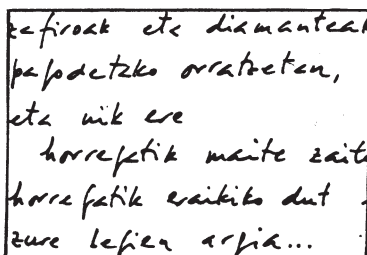 zafiroak eta diamanteak
pagodetako orratzetan,
eta nik ere
horregatik maite
horregatik eraikiko dut
zure begien argia...